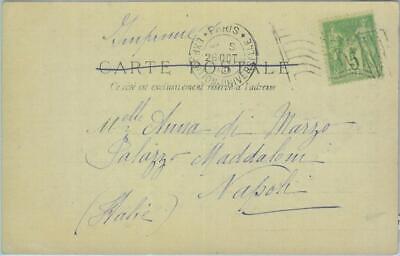 Imprimé
PARIS
28 OCT
5
CARTE POSTALE
Ce côté est exclusivement réservé à l'adresse
Melle Anna di Marzo
Palazzo Maddaloni
Napoli
(Italie)